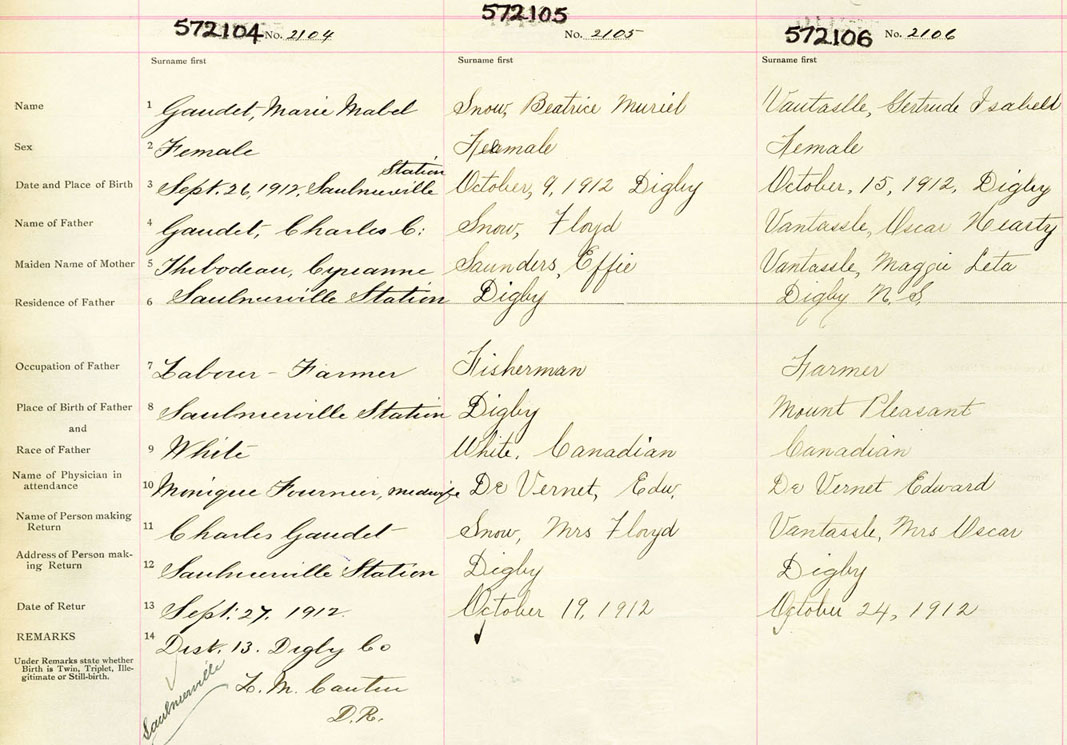 572104 No. 2104
572105 No. 2105
572106 No. 2106
Surname first Surname first Surname first
Name 1 Gaudet, Marie Mabel Snow, Beatrice Muriel Vantasslle, Gertrude Isabell
Sex 2 Female Female Female
Station
Date and Place of Birth 3 Sept. 26, 1912, Saulnierville October, 9, 1912 Digby October, 15, 1912, Digby
Name of Father 4 Gaudet, Charles C: Snow, Floyd Vantassle, Oscar Hearty
Maiden Name of Mother 5 Thibodeau, Cyreanne Saunders, Effie Vantassle, Maggie Leta
Residence of Father 6 Saulnierville Station Digby Digby N. S.
Occupation of Father 7 Labourer - Farmer Fisherman Farmer
Place of Birth of Father 8 Saulnierville Station Digby Mount Pleasant
and
Race of Father 9 White White. Canadian Canadian
Name of Physician in
attendance 10 Monique Fournier, midwife De Vernet, Edw. De Vernet Edward
Name of Person making
Return 11 Charles Gaudet Snow, Mrs Floyd Vantassle, Mrs Oscar
Address of Person mak-
ing Return 12 Saulnierville Station Digby Digby
Date of Retur 13 Sept. 27, 1912. October 19, 1912 October 24, 1912
REMARKS 14 Dist. 13. Digby Co
Under Remarks state whether
Birth is Twin, Triplet, Ille-
gitimate or Still-birth.
Saulnierville
L. M.
D.R.